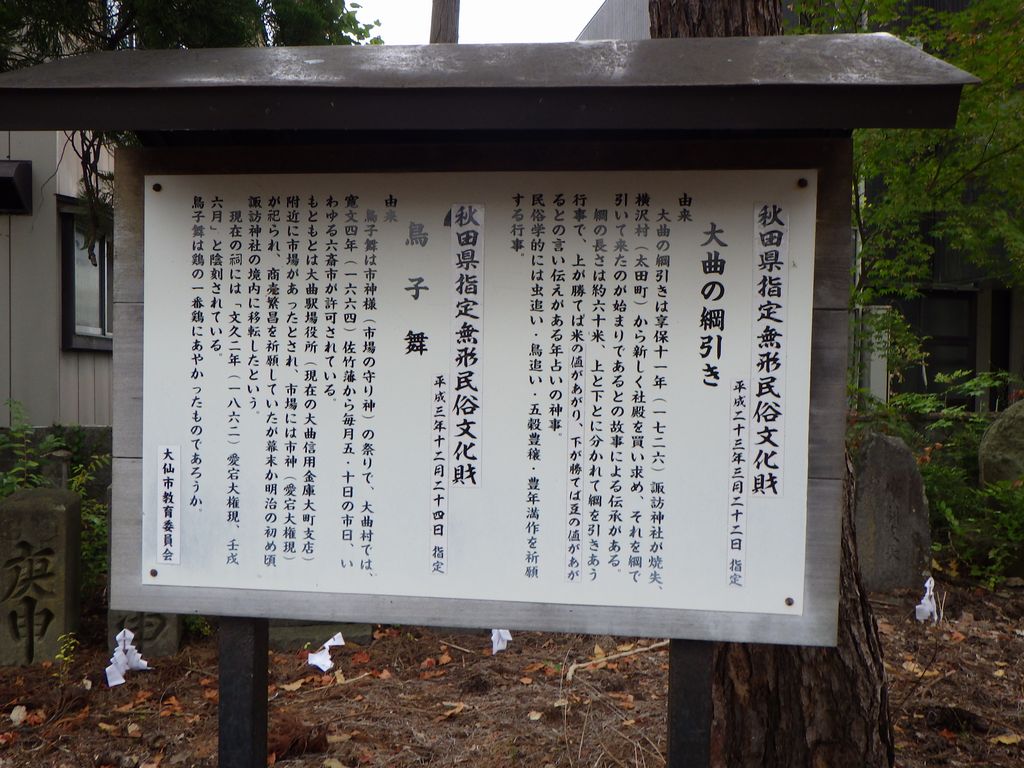 秋田県指定無形民俗文化財
平成二十三年三月二十二日 指定
大曲の綱引き
由来
大曲の綱引きは享保十一年（一七二六）諏訪神社が焼失、
横沢村（太田町）から新しく社殿を買い求め、それを綱で
引いて来たのが始まりであるとの故事による伝承がある。
綱の長さは約六十米、上と下とに分かれて綱を引きあう
行事で、上が勝てば米の値があがり、下が勝てば豆の値があが
るとの言い伝えがある年占いの神事。
民俗学的には虫追い・鳥追い・五穀豊穣・豊年満作を祈願
する行事。
秋田県指定無形民俗文化財
平成三年十二月二十四日 指定
鳥子舞
由来
鳥子舞は市神様（市場の守り神）の祭りで、大曲村では、
寛文四年（一六六四）佐竹藩から毎月五・十日の市日、い
わゆる六斎市が許可されている。
もともとは大曲駅場役所（現在の大曲信用金庫大町支店）
附近に市場があったとされ、市場には市神（愛宕大権現）
が祀られ、商売繁昌を祈願していたが幕末か明治の初め頃
諏訪神社の境内に移転したという。
現在の祠には「文久二年（一八六二）愛宕大権現、壬戌
六月」と陰刻されている。
鳥子舞は鶏の一番鶏にあやかったものであろうか。
大仙市教育委員会
庚申
申